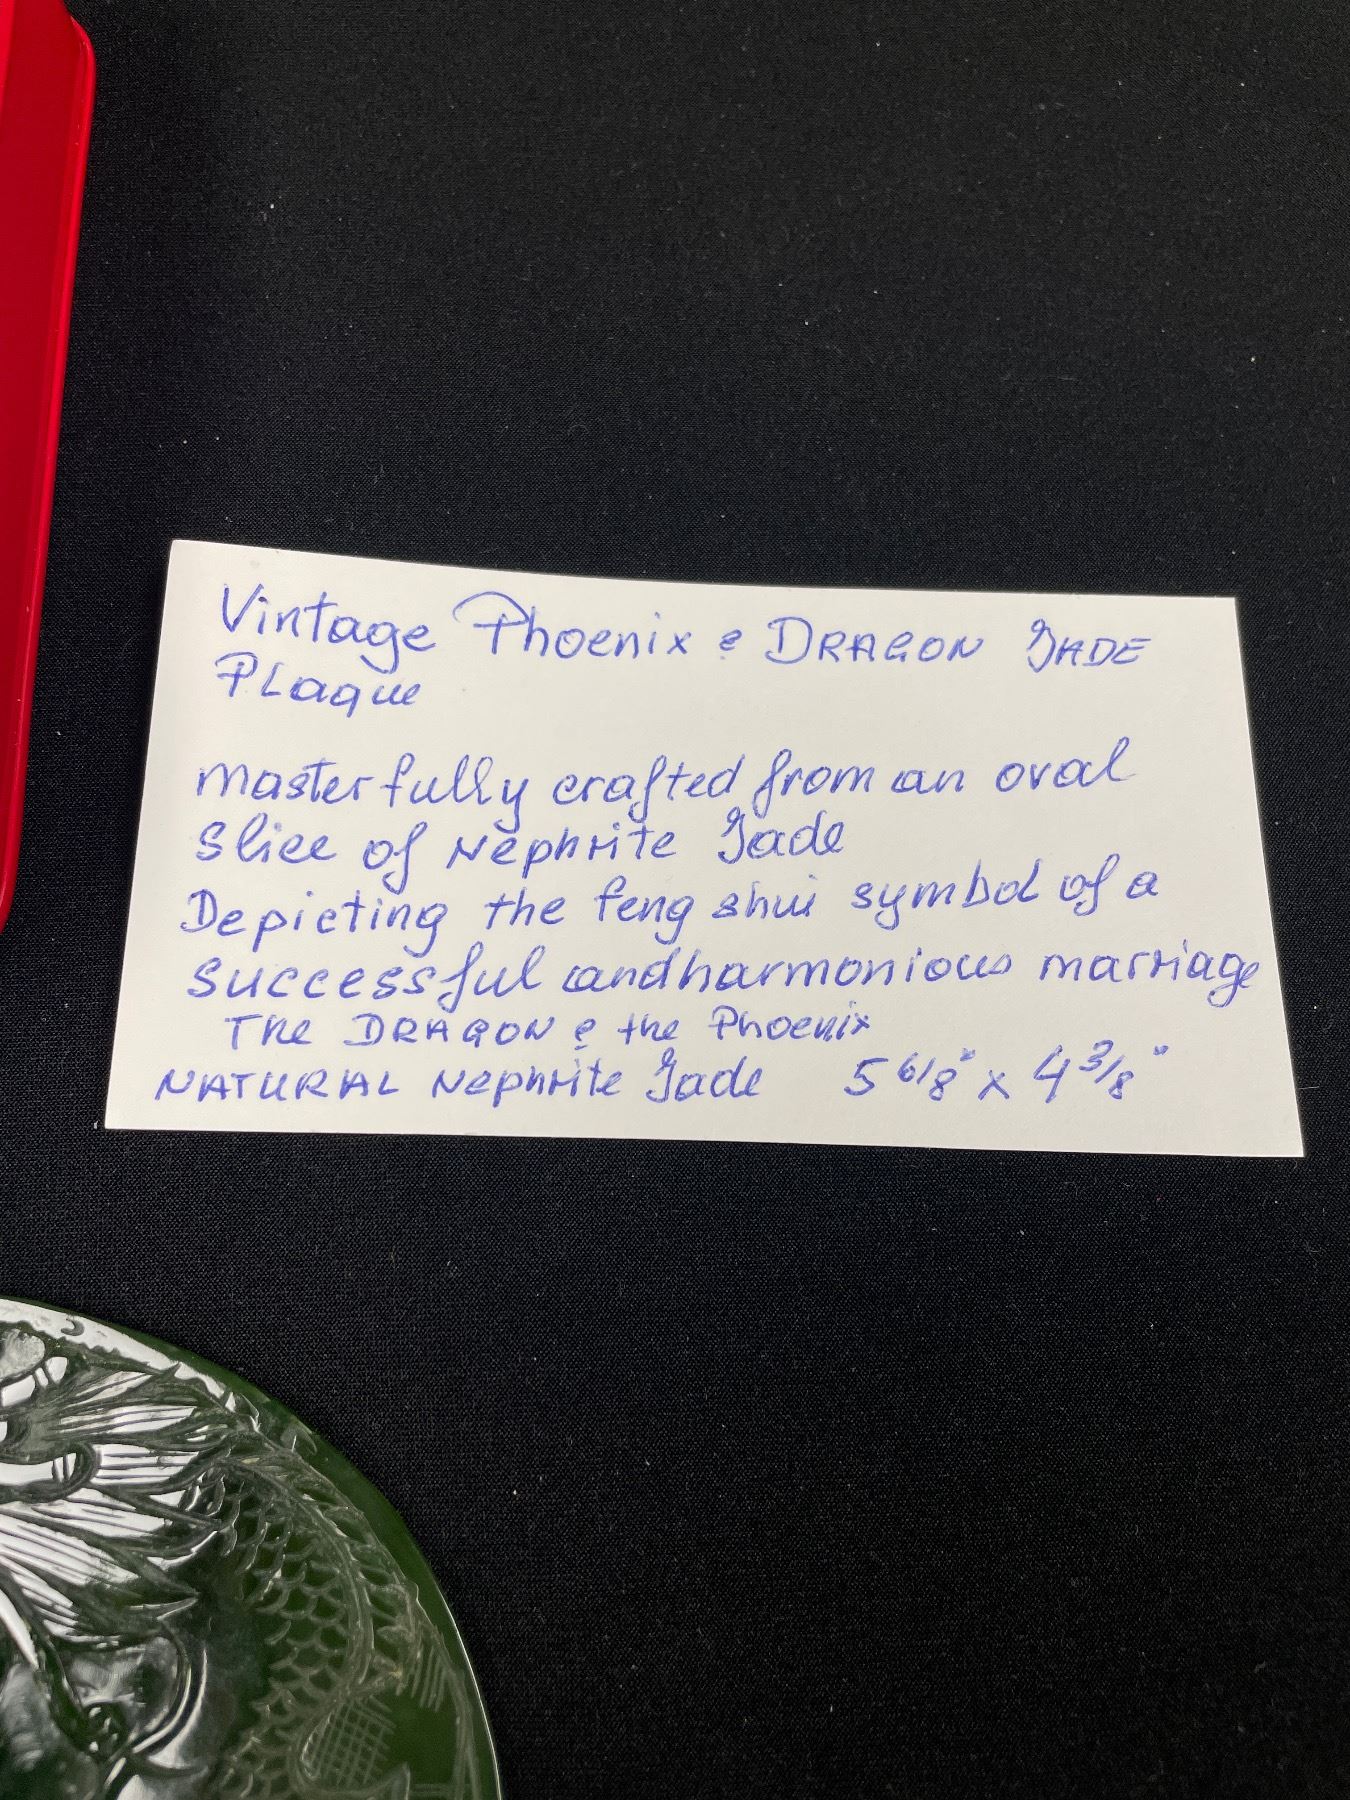 Vintage Phoenix & DRAGON JADE
PLaque
masterfully crafted from an oval
slice of Nephrite Jade
Depicting the feng shui symbol of a
successful and harmonious marriage
The DRAGON & the Phoenix
NATURAL Nephrite Jade 5 6/8" x 4 3/8"